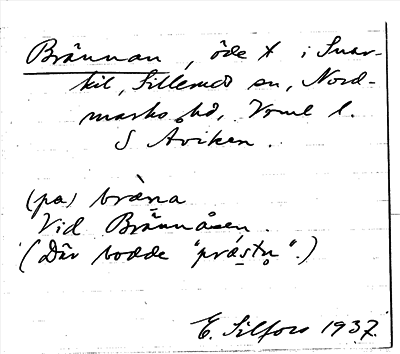 Brännan, öde t i Snar-
kil, Sillerud sn, Nord-
marks hd, Vrml l.
S Aviken.
(pa) bræna
Vid Brännåsen.
(Där bodde "prástn̥".)
E. Silfors 1937.